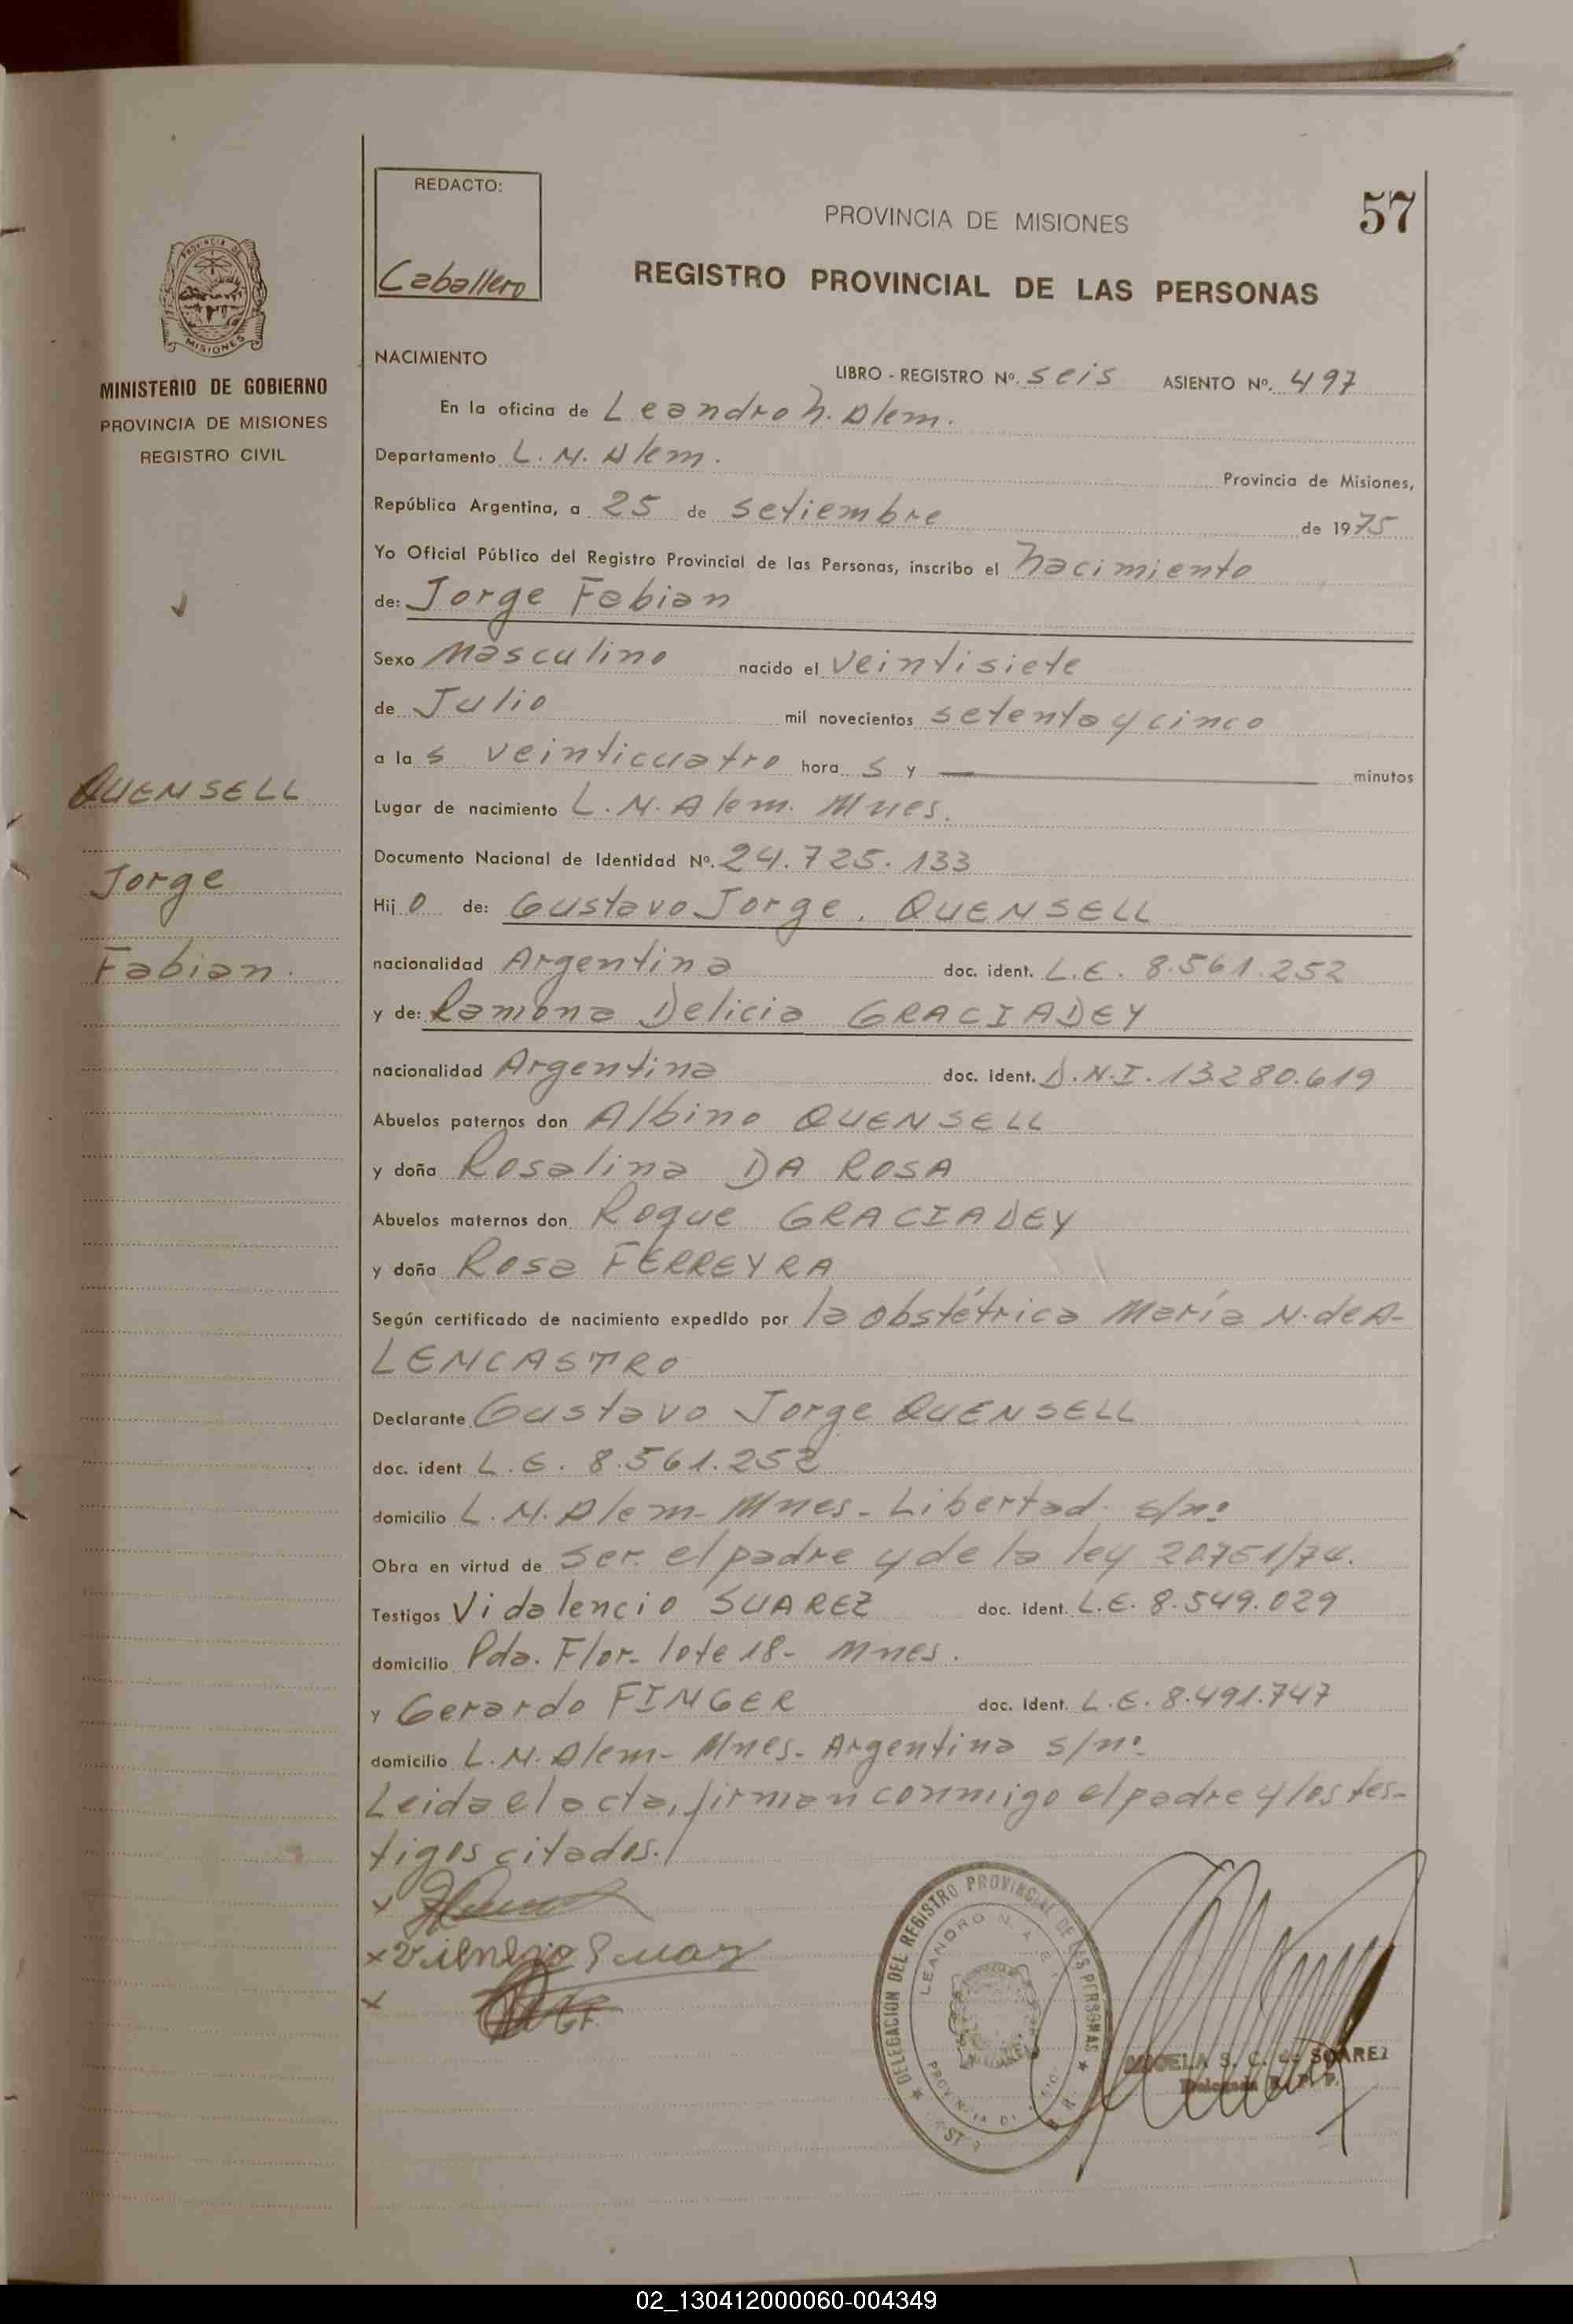 REDACTO:
Caballero
PROVINCIA DE MISIONES
57
REGISTRO PROVINCIAL DE LAS PERSONAS
PROVINCIA DE
MISIONES
MINISTERIO DE GOBIERNO
PROVINCIA DE MISIONES
REGISTRO CIVIL
QUENSELL
Jorge
Fabian.
NACIMIENTO
LIBRO - REGISTRO Nº. seis ASIENTO Nº. 497
En la oficina de Leandro N. Alem.
Departamento L. N. Alem. Provincia de Misiones,
República Argentina, a 25 de setiembre de 1975
Yo Oficial Público del Registro Provincial de las Personas, inscribo el nacimiento
de: Jorge Fabian
Sexo masculino nacido el veintisiete
de Julio mil novecientos setenta y cinco
a la s veinticuatro hora s y — minutos
Lugar de nacimiento L. N. Alem. Mnes.
Documento Nacional de Identidad Nº. 24.725.133
Hij o de: Gustavo Jorge. QUENSELL
nacionalidad Argentina doc. ident. L.E. 8.561.252
y de: Ramona Delicia GRACIADEY
nacionalidad Argentina doc. ident. D.N.I. 13.280.619
Abuelos paternos don Albino QUENSELL
y doña Rosalina DA ROSA
Abuelos maternos don Roque GRACIADEY
y doña Rosa FERREYRA
Según certificado de nacimiento expedido por la obstétrica María N. de A-
LENCASTRO
Declarante Gustavo Jorge QUENSELL
doc. ident L.E. 8.561.252
domicilio L.N. Alem- Mnes- Libertad s/nº
Obra en virtud de ser el padre y de la ley 20751/74.
Testigos Vidalencio SUAREZ doc. Ident. L.E. 8.549.029
domicilio Pda. Flor- lote 18- Mnes.
y Gerardo FINGER doc. Ident. L.E. 8.491.747
domicilio L.N. Alem- Mnes- Argentina s/nº
Leida el acta, firman conmigo el padre y los tes-
tigos citados.
DELEGACION DEL REGISTRO PROVINCIAL DE LAS PERSONAS
LEANDRO N. ALEM
S. C. de SUAREZ
Delegada R. P. P.
02_130412000060-004349